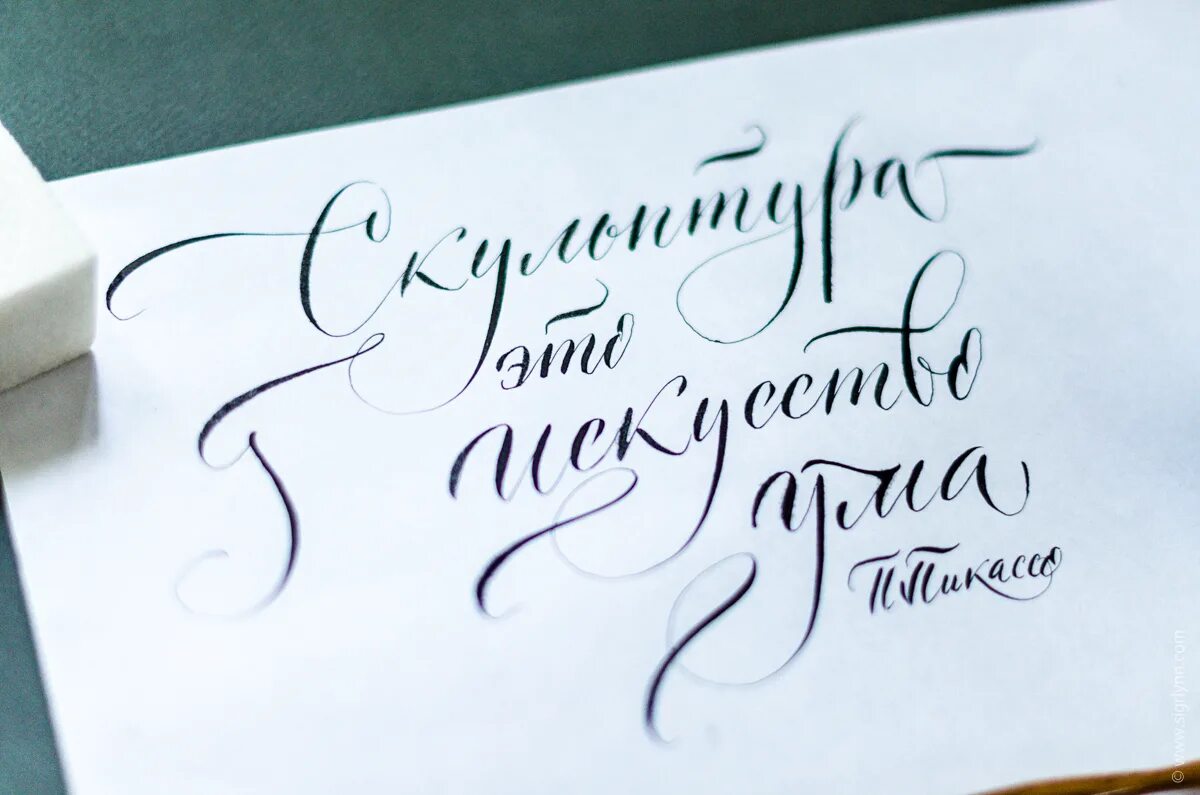 Скульптура
это
искусство
ума
П. Пикассо
© www.sigrlynn.com